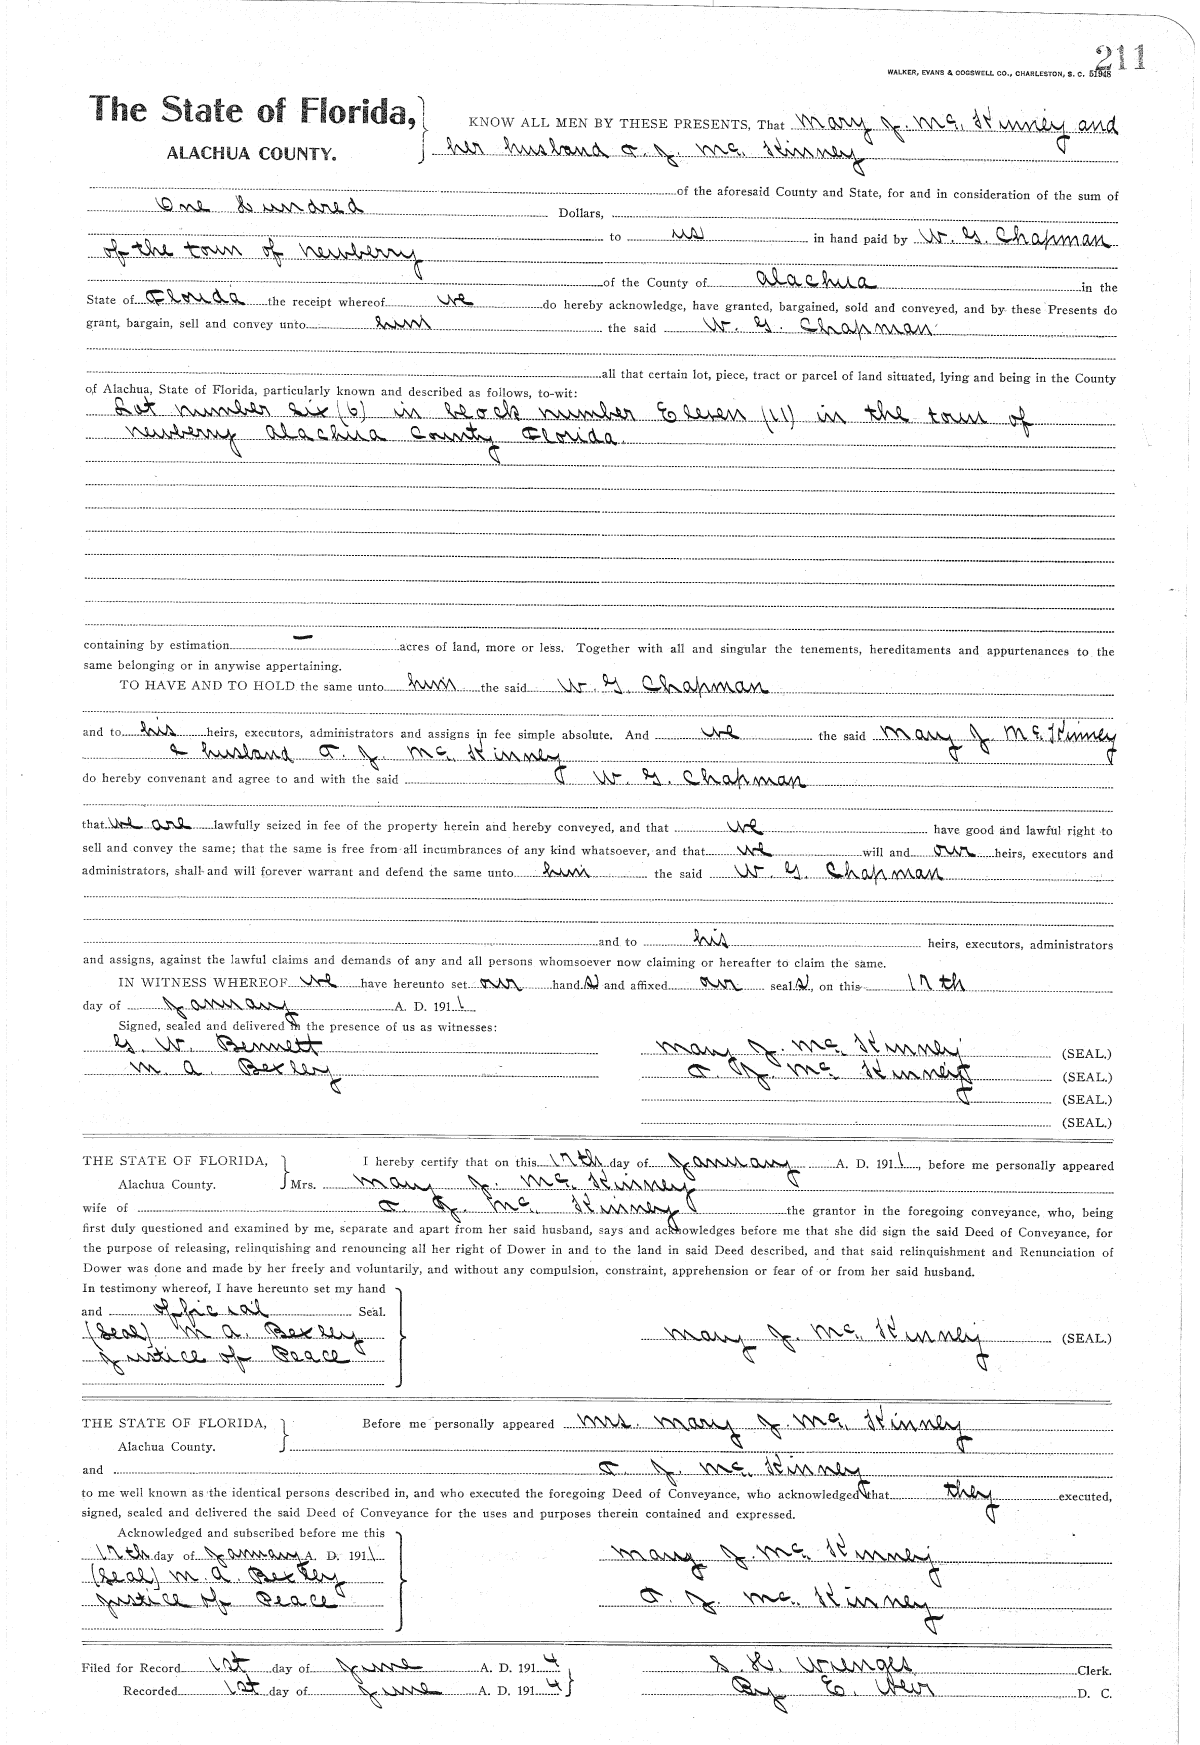 211
WALKER, EVANS & COGSWELL CO., CHARLESTON, S. C. 51948
The State of Florida,
ALACHUA COUNTY.
KNOW ALL MEN BY THESE PRESENTS, That Mary J. Mc. Kinney and
her husband O. J. Mc. Kinney
of the aforesaid County and State, for and in consideration of the sum of
One Hundred Dollars,
to us in hand paid by W. G. Chapman
of the town of Newberry
of the County of Alachua in the
State of Florida the receipt whereof we do hereby acknowledge, have granted, bargained, sold and conveyed, and by these Presents do
grant, bargain, sell and convey unto him the said W. G. Chapman
all that certain lot, piece, tract or parcel of land situated, lying and being in the County
of Alachua, State of Florida, particularly known and described as follows, to-wit:
Lot number six (6) in block number Eleven (11) in the town of
Newberry Alachua County Florida.
containing by estimation — acres of land, more or less. Together with all and singular the tenements, hereditaments and appurtenances to the
same belonging or in anywise appertaining.
TO HAVE AND TO HOLD the same unto him the said W. G. Chapman
and to his heirs, executors, administrators and assigns in fee simple absolute. And we the said Mary J. McKinney
& husband O. J. Mc. Kinney
do hereby convenant and agree to and with the said W. G. Chapman
that we are lawfully seized in fee of the property herein and hereby conveyed, and that we have good and lawful right to
sell and convey the same; that the same is free from all incumbrances of any kind whatsoever, and that we will and our heirs, executors and
administrators, shall and will forever warrant and defend the same unto him the said W. G. Chapman
and to his heirs, executors, administrators
and assigns, against the lawful claims and demands of any and all persons whomsoever now claiming or hereafter to claim the same.
IN WITNESS WHEREOF we have hereunto set our hand s and affixed our seal s, on this 17th
day of January A. D. 1911
Signed, sealed and delivered in the presence of us as witnesses:
G. W. Bennett
M. A. Bexley
Mary J. Mc. Kinney (SEAL.)
O. J. Mc Kinney (SEAL.)
(SEAL.)
(SEAL.)
THE STATE OF FLORIDA,
Alachua County.
I hereby certify that on this 17th day of January A. D. 1911, before me personally appeared
Mrs. Mary J. Mc. Kinney
wife of O. J. Mc. Kinney the grantor in the foregoing conveyance, who, being
first duly questioned and examined by me, separate and apart from her said husband, says and acknowledges before me that she did sign the said Deed of Conveyance, for
the purpose of releasing, relinquishing and renouncing all her right of Dower in and to the land in said Deed described, and that said relinquishment and Renunciation of
Dower was done and made by her freely and voluntarily, and without any compulsion, constraint, apprehension or fear of or from her said husband.
In testimony whereof, I have hereunto set my hand
and official Seal.
(Seal) M A. Bexley
Justice of Peace
Mary J. Mc. Kinney (SEAL.)
THE STATE OF FLORIDA,
Alachua County.
Before me personally appeared Mrs. Mary J. Mc. Kinney
and O. J. Mc. Kinney
to me well known as the identical persons described in, and who executed the foregoing Deed of Conveyance, who acknowledged that they executed,
signed, sealed and delivered the said Deed of Conveyance for the uses and purposes therein contained and expressed.
Acknowledged and subscribed before me this
17th day of January A. D. 1911
(Seal) M. A. Bexley
Justice of Peace
Mary J. Mc. Kinney
O. J. Mc. Kinney
Filed for Record 1st day of June A. D. 1914
Recorded 1st day of June A. D. 1914
S. H. Wienges Clerk.
By E. Weir D. C.